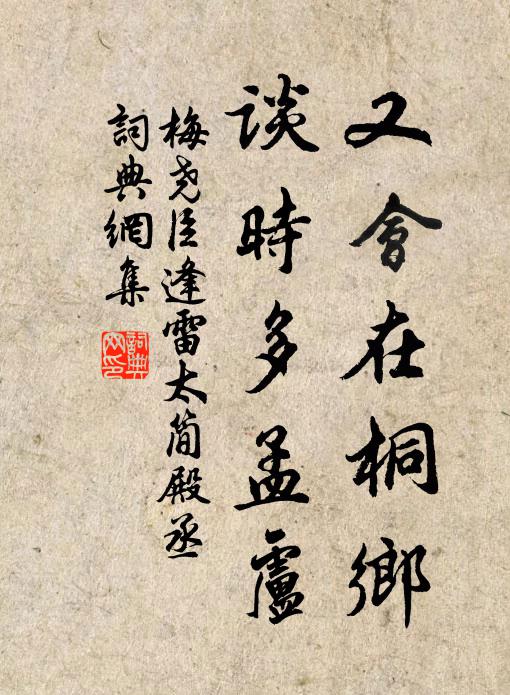 又會在桐鄉
談時多孟盧
梅堯臣逢雷太簡殿丞
詞典網集
詞典網印